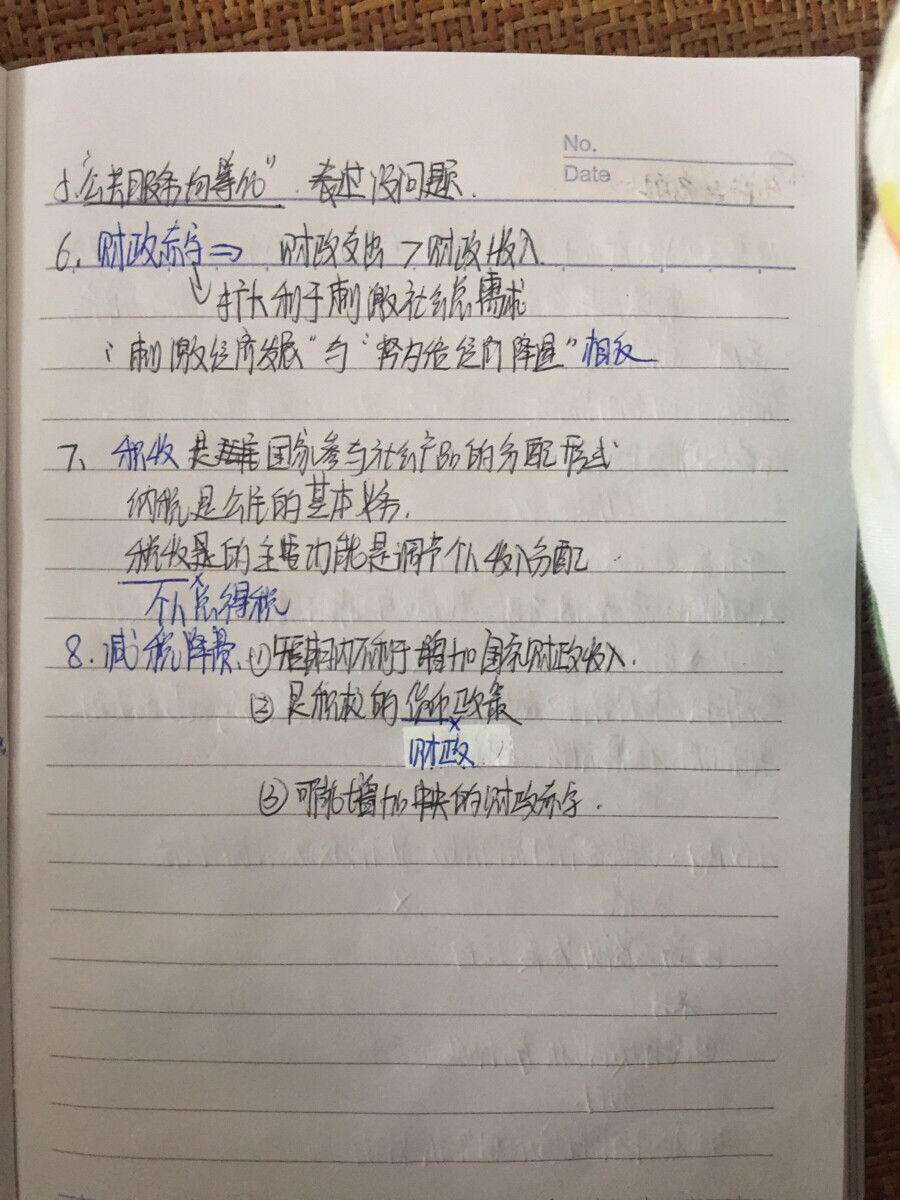 No.
Date
5."公共服务均等化". 表述没问题.
6. 财政赤字⇒ 财政支出 > 财政收入.
扩大利于刺激社会总需求
"刺激经济发展"与"努力给经济降温"相反
7、税收是国家参与社会产品的分配形式
纳税是公民的基本义务.
税收的主要功能是调节个人收入分配.
×
个人总得税
8.减税降费.①短期内不利于增加国家财政收入.
②是积极的货币政策
×
财政
③可能增加中央的财政赤字.